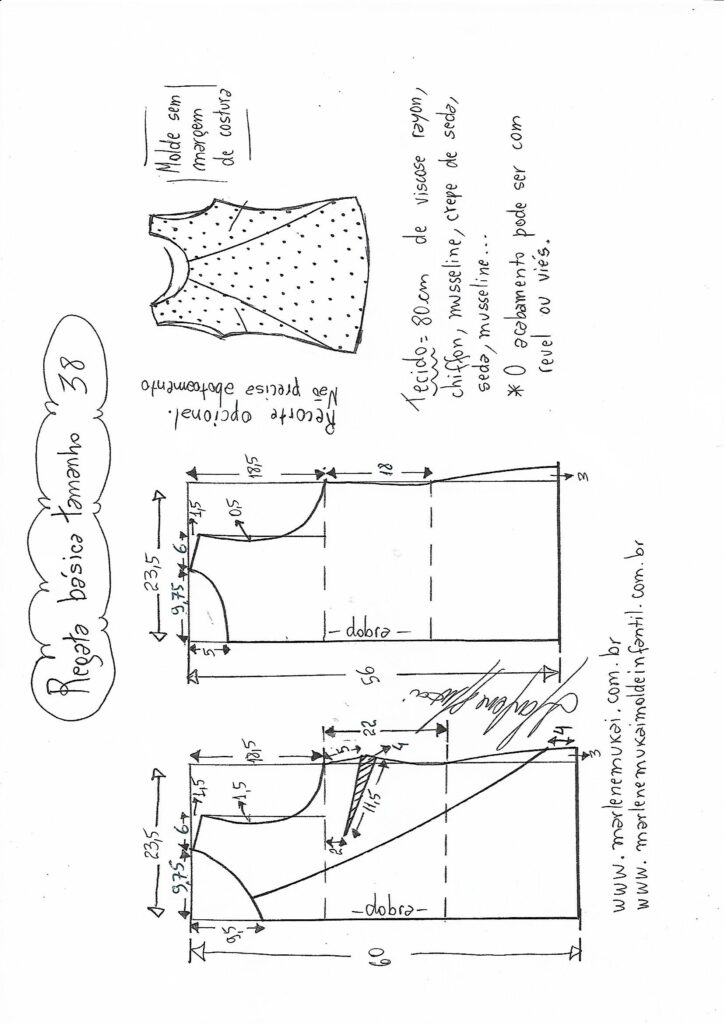 Regata básica tamanho 38
Molde sem
margem
de costura
Recorte opcional.
Não precisa abotoamento
Tecido = 80cm de viscose rayon,
chiffon, musseline, crepe de seda,
seda, musseline...
* O acabamento pode ser com
revel ou viés.
23,5
9,75
6
1,5
1,5
18,5
9,5
60
22
5
4
11,5
2
-dobra-
4
3
23,5
9,75
6
1,5
0,5
18,5
18
5
56
-dobra-
3
Marlene Mukai
www.marlenemukai.com.br
www.marlenemukaimoldeinfantil.com.br